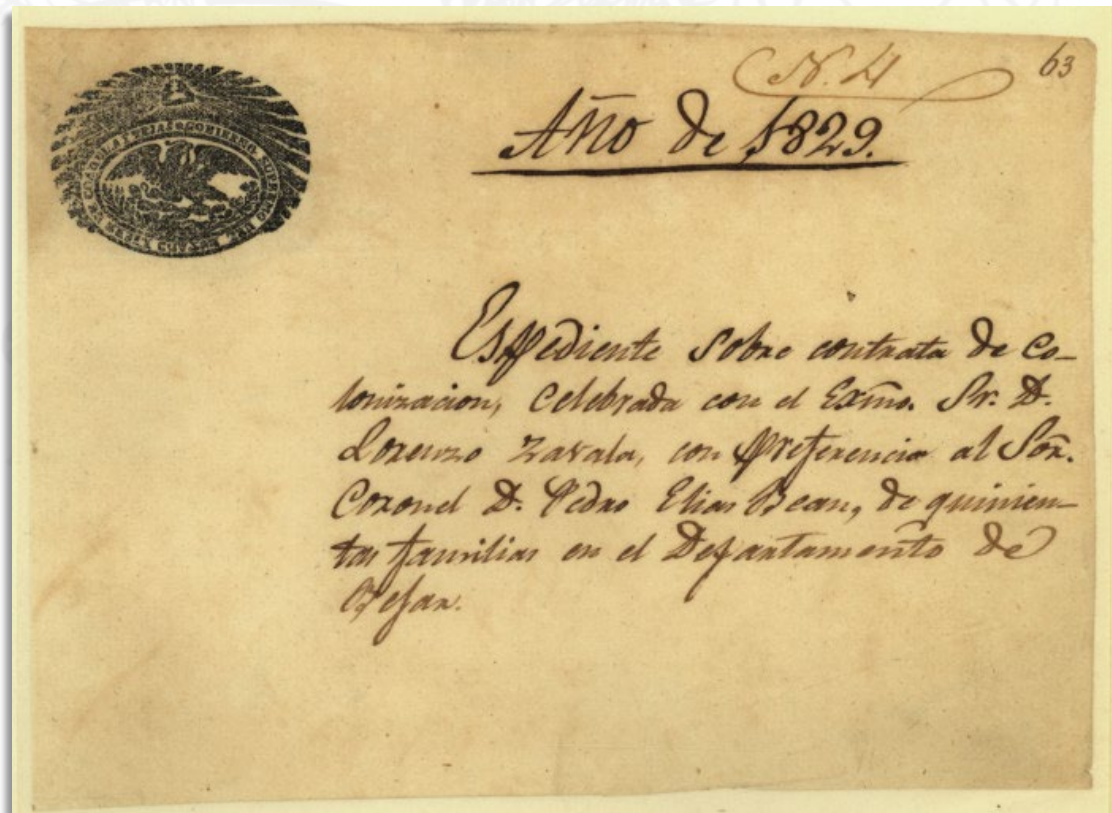 N. 4
63
Año de 1829.
GOBIERNO SUPREMO DEL ESTADO LIBRE DE COAHUILA Y TEJAS
Espediente sobre contrata de co-
lonizacion, celebrada con el Exmo. Sr. D.
Lorenzo Zavala, con preferencia al Sōr.
Coronel D. Pedro Elias Bean, de quinien-
tas familias en el Departamento de
Bejar.